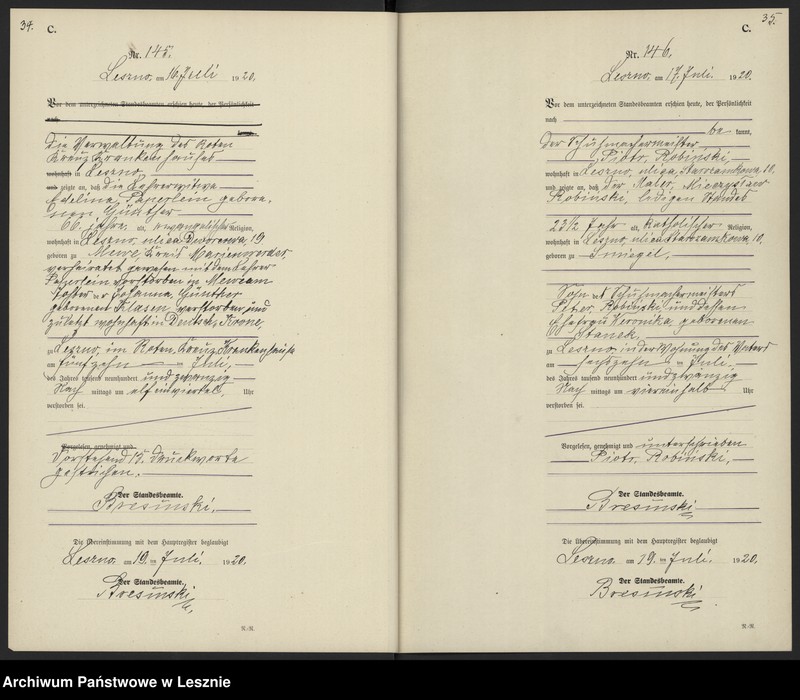 34.
C.
Nr. 145.
Leszno, am 16. Juli 1920.
Vor dem unterzeichneten Standesbeamten erschien heute, der Persönlichkeit
nach
Die Verwaltung des Roten
Kreuz Krankenhauses
wohnhaft in Leszno,
und zeigte an, daß die Lehrerwitwe
geboren
Günther
66 Jahre alt, evangelischer Religion,
wohnhaft in Leszno, ulica Dworcowa, 19
geboren zu Mewe, Kreis Marienwerder,
verheiratet gewesen mit dem Lehrer
verstorben in
Tochter der Johanna Günther
geborenen Klasen, verstorben und
zuletzt wohnhaft in Deutsch Krone,
zu Leszno, im Roten Kreuz Krankenhause
am fünfzehn ten Juli,
des Jahres tausend neunhundert und zwanzig
Nach mittags um elfeinviertel Uhr
verstorben sei.
Vorgelesen, genehmigt und
Vorstehend 15 Druckworte
gestrichen.
Der Standesbeamte.
Bresinski.
Die Übereinstimmung mit dem Hauptregister beglaubigt
Leszno, am 19. ten Juli. 1920.
Der Standesbeamte.
Bresinski
R.-R.
35.
C.
Nr. 146.
Leszno, am 17. Juli. 1920.
Vor dem unterzeichneten Standesbeamten erschien heute, der Persönlichkeit
nach be kannt,
der Schuhmachermeister
Piotr Robinski,
wohnhaft in Leszno, ulica Starozamkowa, 10,
und zeigte an, daß der Maler, Mieczyslaw
Robinski, ledigen Standes
23 1/2 Jahr alt, katholischer Religion,
wohnhaft in Leszno, ulica Starozamkowa, 10,
geboren zu Smiegel,
Sohn des Schuhmachermeisters
Piotr Robinski, und dessen
Ehefrau Veronika geborenen
Stanek,
zu Leszno, in der Wohnung des Vaters
am sechszehn ten Juli.
des Jahres tausend neunhundert und zwanzig
Nach mittags um viereinhalb Uhr
verstorben sei.
Vorgelesen, genehmigt und unterschrieben
Piotr Robinski.
Der Standesbeamte.
Bresinski
Die Übereinstimmung mit dem Hauptregister beglaubigt
Leszno, am 19. ten Juli. 1920.
Der Standesbeamte.
Bresinski
R.-R.
Archiwum Państwowe w Lesznie